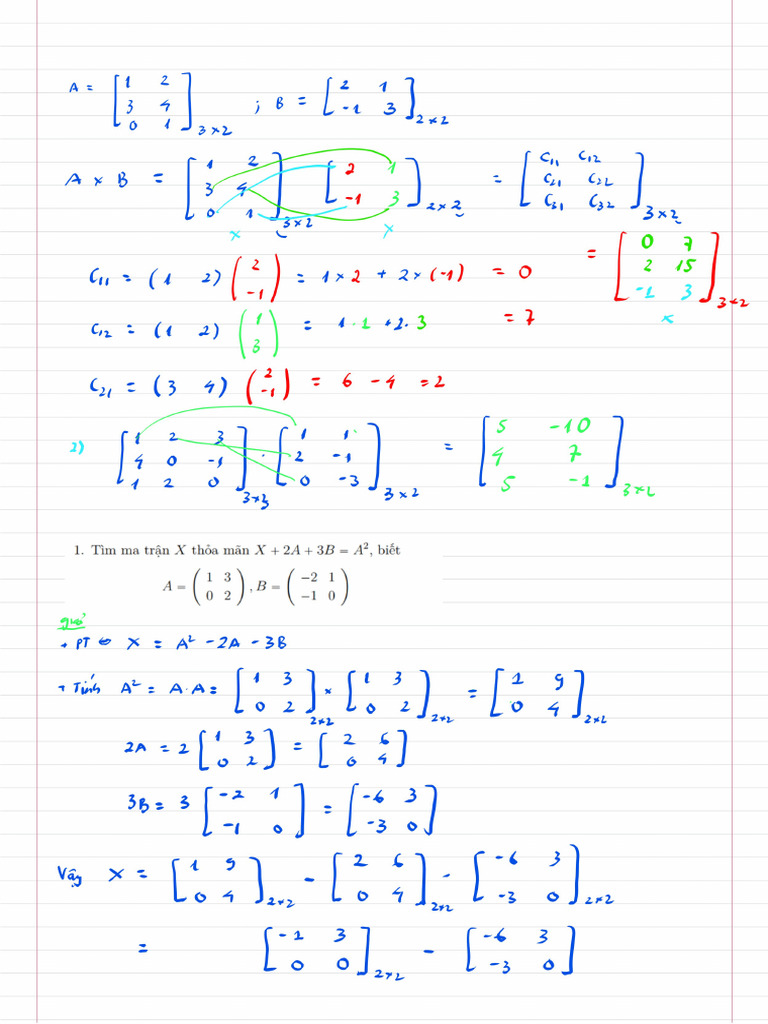 A = [1 2; 3 4; 0 1]₃ₓ₂ ; B = [2 1; -1 3]₂ₓ₂
A × B = [1 2; 3 4; 0 1]₃ₓ₂ [2 1; -1 3]₂ₓ₂ = [C₁₁ C₁₂; C₂₁ C₂₂; C₃₁ C₃₂]₃ₓ₂
x x
= [0 7; 2 15; -1 3]₃ₓ₂
x
C₁₁ = (1 2) (2; -1) = 1×2 + 2×(-1) = 0
C₁₂ = (1 2) (1; 3) = 1·1 + 2·3 = 7
C₂₁ = (3 4) (2; -1) = 6 - 4 = 2
2) [1 2 3; 4 0 -1; 1 2 0]₃ₓ₃ · [1 1; 2 -1; 0 -3]₃ₓ₂ = [5 -10; 4 7; 5 -1]₃ₓ₂
1. Tìm ma trận X thỏa mãn X + 2A + 3B = A², biết
A = (1 3; 0 2), B = (-2 1; -1 0)
giải
+ PT ⇔ X = A² - 2A - 3B
+ Tính A² = A·A = [1 3; 0 2]₂ₓ₂ × [1 3; 0 2]₂ₓ₂ = [1 9; 0 4]₂ₓ₂
2A = 2 [1 3; 0 2] = [2 6; 0 4]
3B = 3 [-2 1; -1 0] = [-6 3; -3 0]
Vậy X = [1 9; 0 4]₂ₓ₂ - [2 6; 0 4]₂ₓ₂ - [-6 3; -3 0]₂ₓ₂
= [-1 3; 0 0]₂ₓ₂ - [-6 3; -3 0]